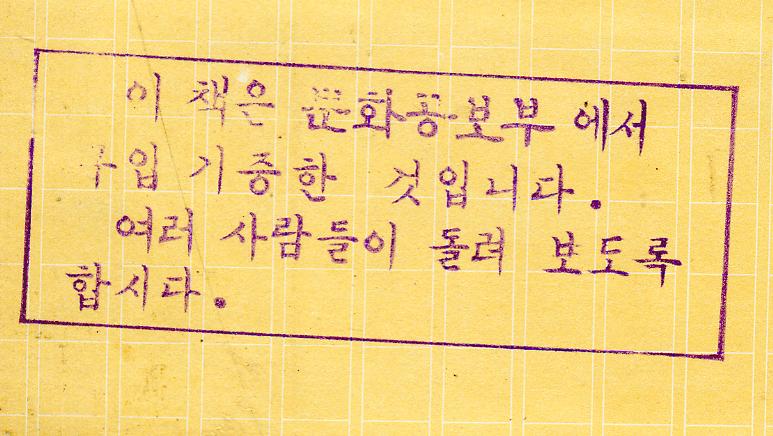 이 책은 문화공보부에서
구입 기증한 것입니다.
여러 사람들이 돌려 보도록
합시다.